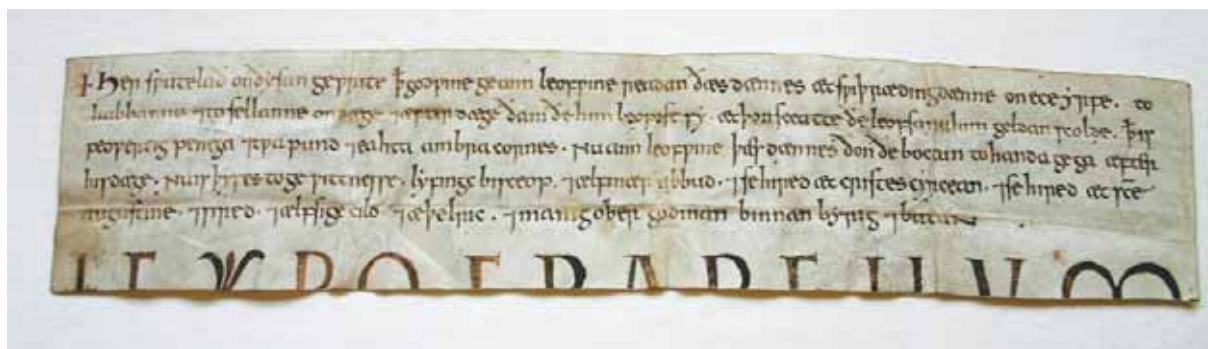 + Her sƿutelað on ðisan geƿrite ꝥ godƿine geann leofƿine readan ðæs dænnes æt sƿiþrædingdænne on ece yrfe. to
habbanne ⁊ to sellanne on dæge ⁊ æfter dæge ðam ðe him leofost sy. æt þon sceatte ðe leofsunu him geldan scolde. ꝥ is
feoƿertig penega ⁊ tƿa pund ⁊ eahta ambra cornes. Nu ann leofƿine þæs dænnes ðon ðe bocann to handa gega æfter
his dæge. Nu is þyses to geƿittnesse. lyfinge bisceop. ⁊ ælfmær abbud. ⁊ se hired æt cristes circean. ⁊ se hired æt sc̄e
augustine. ⁊ sired. ⁊ ælfsige cild ⁊ æþelric. ⁊ manig oþer godman binnan byrig ⁊ butan